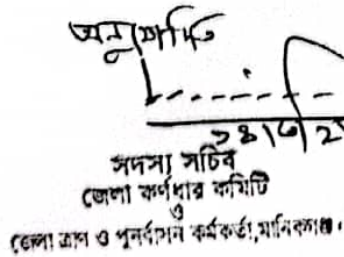 অনুমোদিত
২৪|৬|২
সদস্য সচিব
জেলা কর্ণধার কমিটি
ও
জেলা ত্রাণ ও পুনর্বাসন কর্মকর্তা, মানিকগঞ্জ।